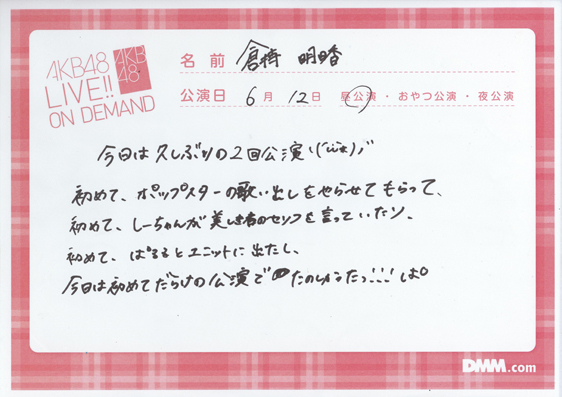 AKB48
LIVE!!
ON DEMAND
AKB
48
名前 倉持 明日香
公演日 6月 12日 昼公演・おやつ公演・夜公演
今日は久しぶりの2回公演
初めて、ポップスターの歌い出しをやらせてもらって、
初めて、しーちゃんが美しき者のセリフを言っていたり、
初めて、ぱるるとユニットに出たし、
今日は初めてだらけの公演で たのしかったっ!!!
DMM.com